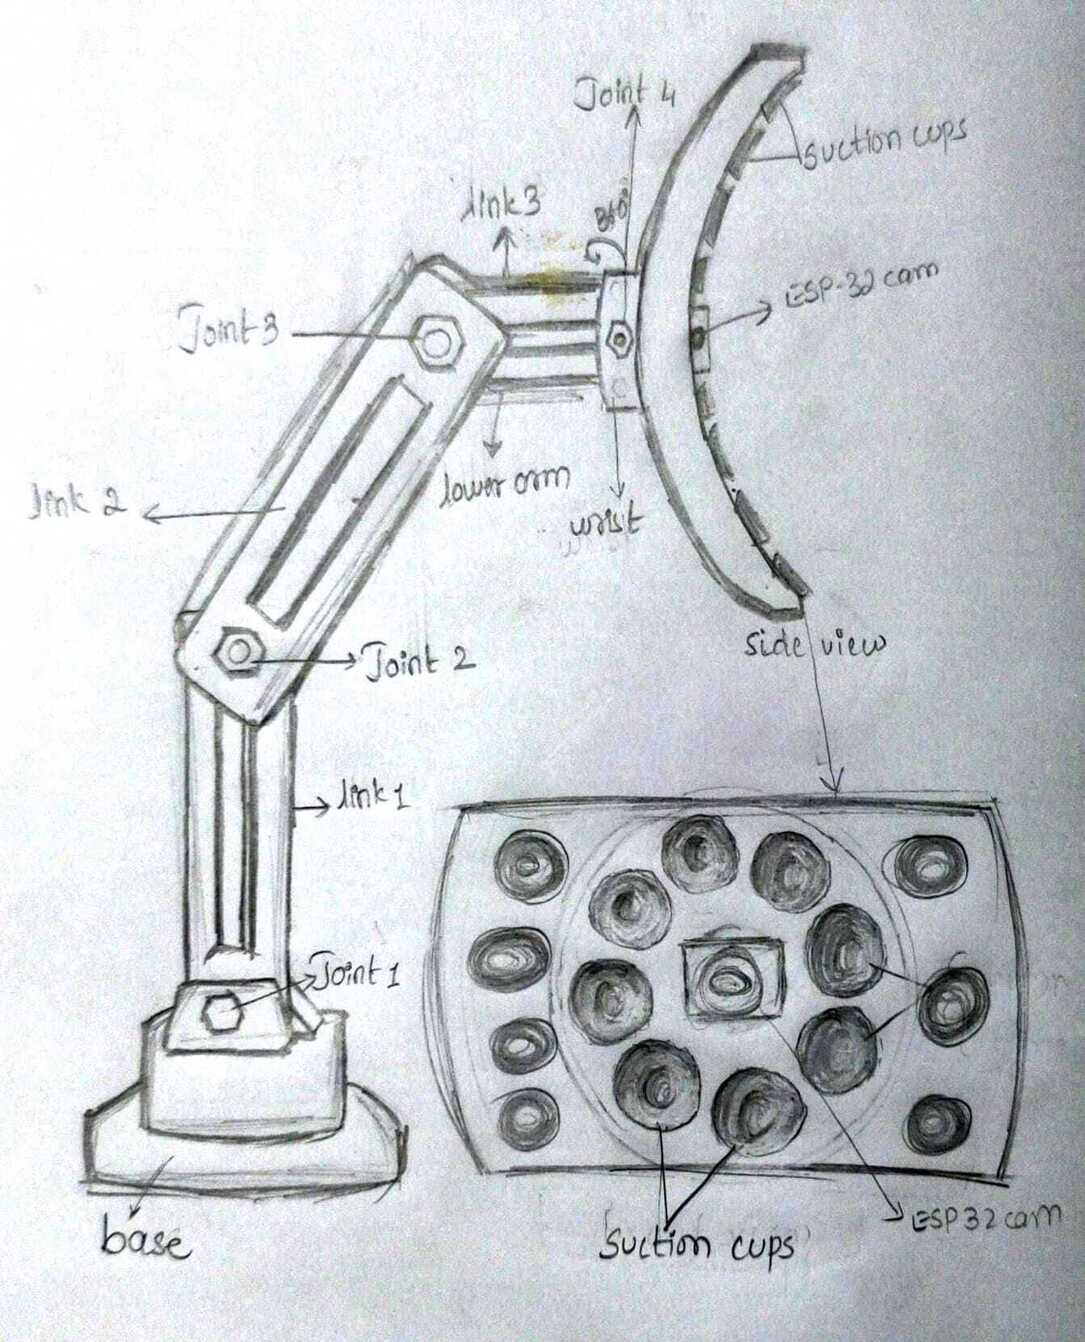 Joint 4
suction cups
link3
360°
ESP-32 cam
Joint 3
lower arm
link 2
wrist
side view
Joint 2
link 1
Joint 1
base
suction cups
ESP 32 cam